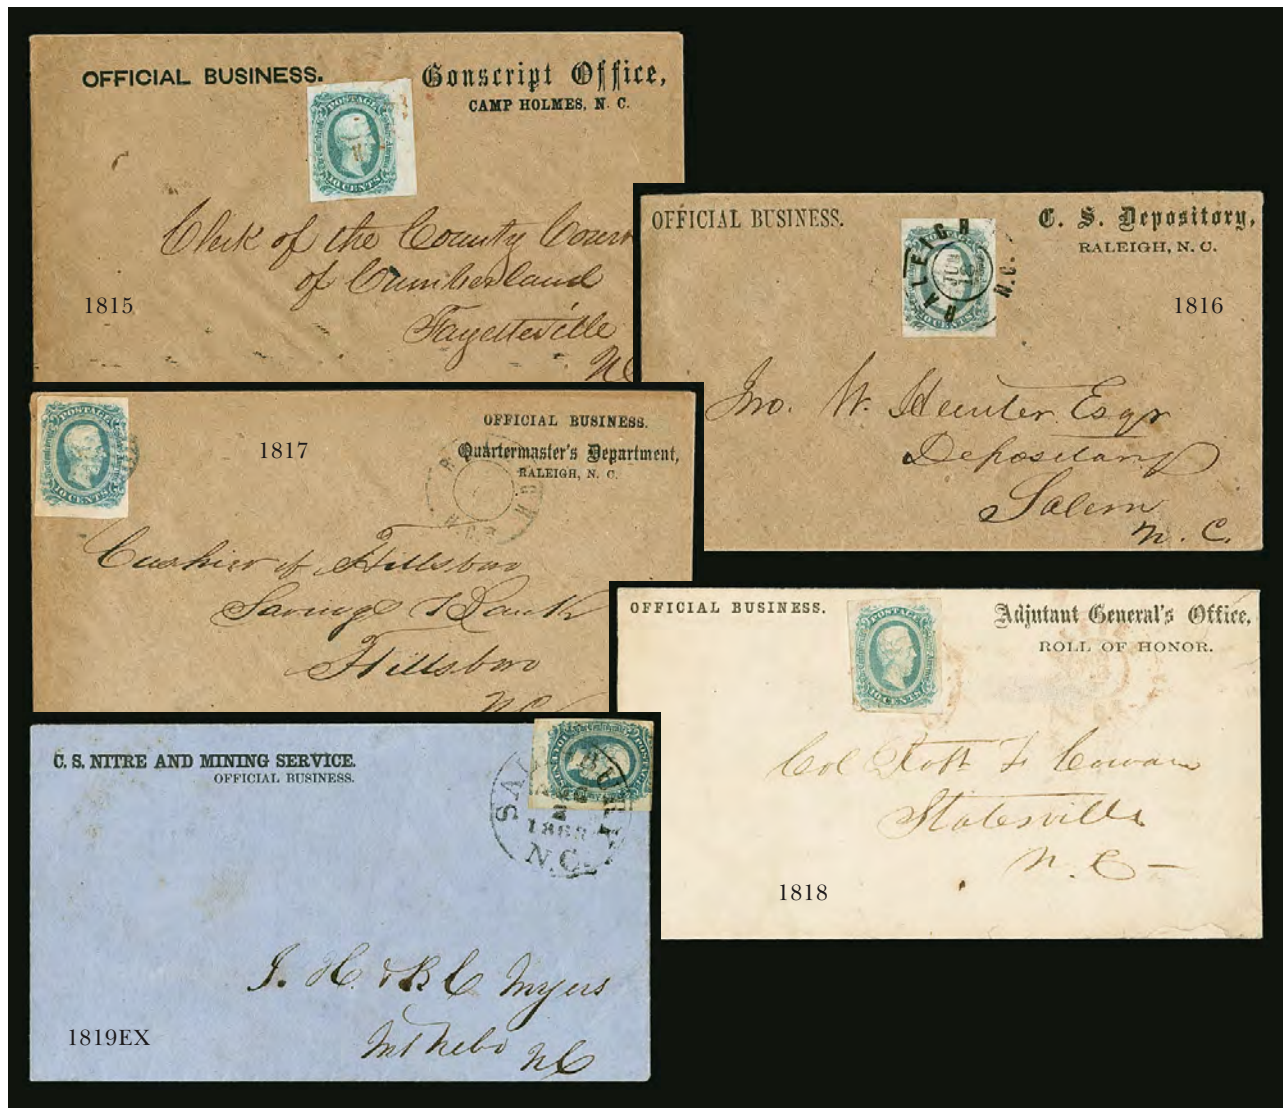 OFFICIAL BUSINESS.
Conscript Office,
CAMP HOLMES, N. C.
POSTAGE
10 CENTS
Clerk of the County Court
of Cumberland
Fayetteville
NC
1815
OFFICIAL BUSINESS.
C. S. Depository,
RALEIGH, N. C.
RALEIGH
N.C.
JUN
10 CENTS
1816
Jno. W. Hunter Esqr
Depositary
Salem
N. C.
1817
OFFICIAL BUSINESS.
Quartermaster's Department,
RALEIGH, N. C.
POSTAGE
10 CENTS
N.C.
Cashier of Hillsboro
Savings Bank
Hillsboro
NC
OFFICIAL BUSINESS.
Adjutant General's Office,
ROLL OF HONOR.
POSTAGE
10 CENTS
Col Robt F Cowan
Statesville
N. C.
1818
C. S. NITRE AND MINING SERVICE.
OFFICIAL BUSINESS.
POSTAGE
N.C.
J. H. & R C Myers
Mt Nebo NC
1819EX